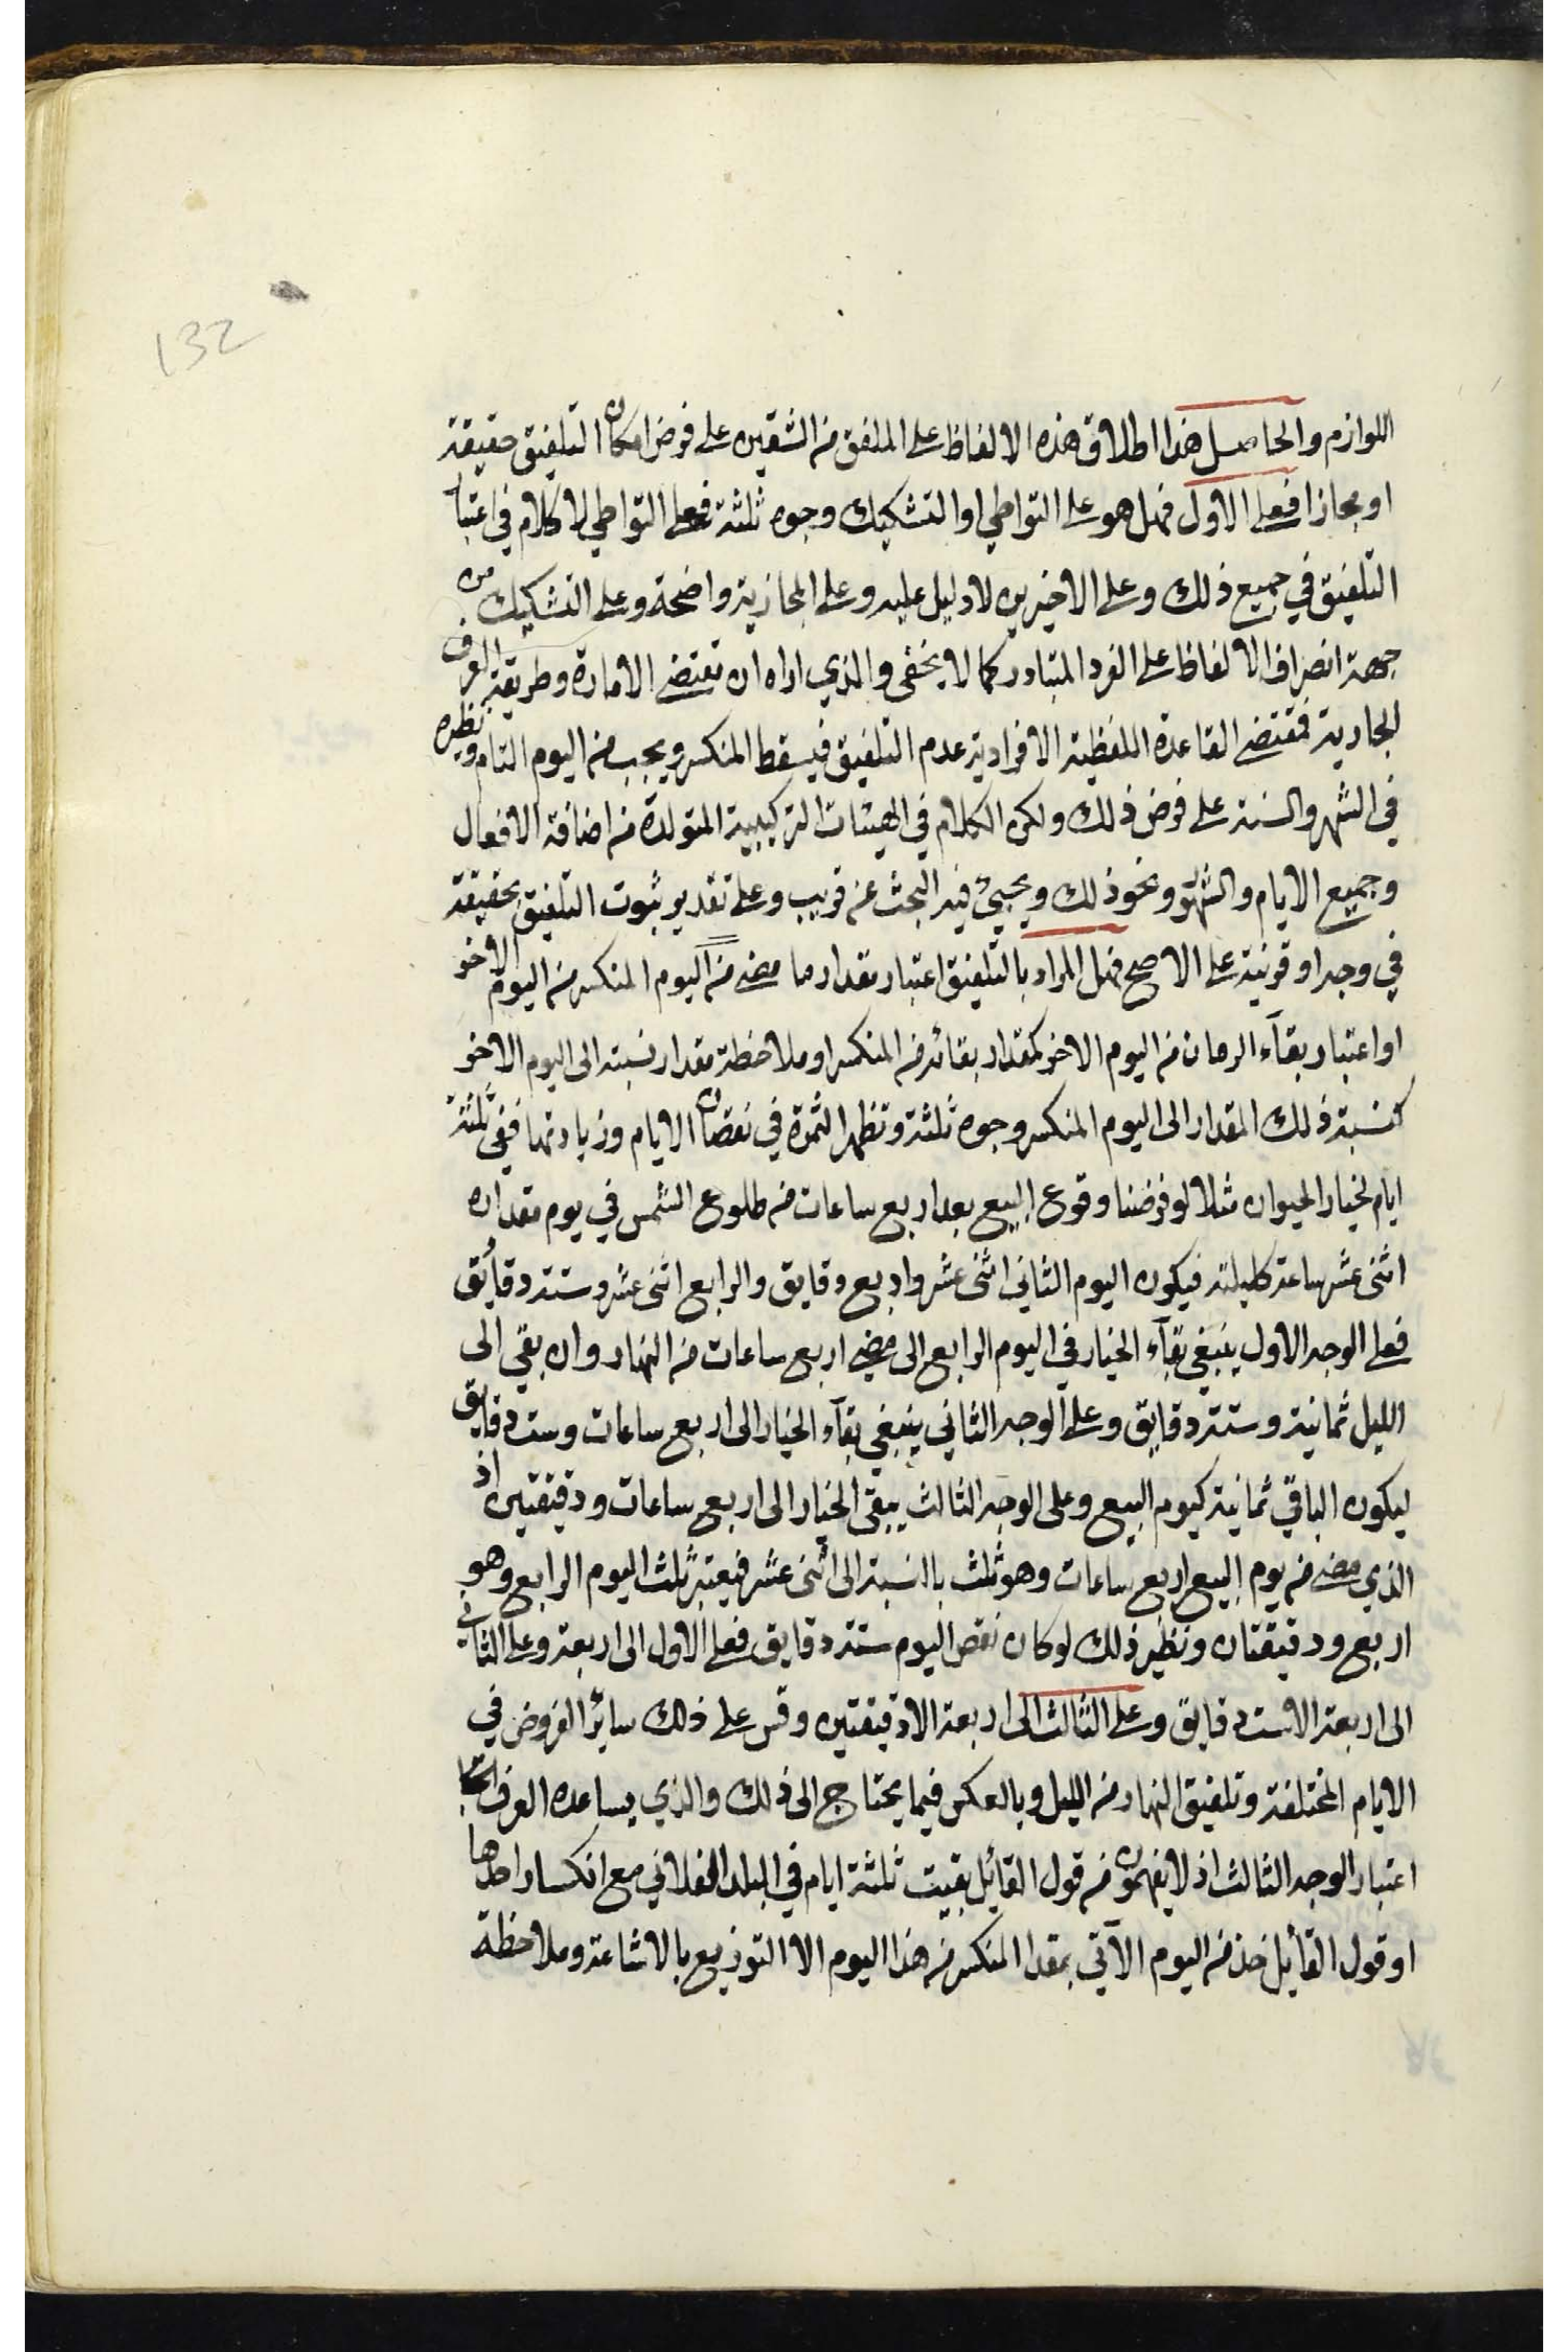 132
اللوازم والحاصل هذا اطلاق هذه الالفاظ على الملفق من الشقين على فرض امكان التلفيق حقيقة
او مجازا فعلى الاول فهل هو على التواطي او التشكيك وجوه ثلثة فعلى التواطي لا كلام في اعتبار
التلفيق في جميع ذلك وعلى الاخيرين لا دليل عليه وعلى المجازية واضحة وعلى التشكيك من
جهة انصراف الالفاظ على الفرد المتبادر كما لا يخفى والذي اراه ان تقتضي الامارة وطريقة العرف
الجارية فمقتضى القاعدة اللفظية الافرادية عدم التلفيق فيسقط المنكسر ويجب من اليوم التام ونظيره
في الشهر والسنة على فرض ذلك ولكن الكلام في الهيئات التركيبية المتولدة من اضافة الافعال
وجميع الايام والشهور ونحو ذلك ويجيئ فيه البحث عن قريب وعلى تقدير ثبوت التلفيق بحقيقة
في وجه او قرنية على الاصح فهل المراد بالتلفيق اعتبار مقدار ما مضى من اليوم المنكسر من اليوم الاخر
او اعتبار بقاء الزمان من اليوم الاخر كمقدار بقائه من المنكسر او ملاحظة مقدار نسبته الى اليوم الاخر
كنسبة ذلك المقدار الى اليوم المنكسر وجوه ثلثة وتظهر الثمرة في نقصان الايام وزيادتها ففي ثلثة
ايام لخيار الحيوان مثلا لو فرضنا وقوع البيع بعد اربع ساعات من طلوع الشمس في يوم مقداره
اثنى عشر ساعة كليلته فيكون اليوم الثاني اثنى عشر واربع دقايق والرابع اثنى عشر وستة دقائق
فعلى الوجه الاول ينبغي بقاء الخيار في اليوم الرابع الى مضي اربع ساعات من النهار وان بقي الى
الليل ثمانية وستة دقايق وعلى الوجه الثاني ينبغي بقاء الخيار الى اربع ساعات وست دقايق
ليكون الباقي ثمانية كيوم البيع وعلى الوجه الثالث يبقى الخيار الى اربع ساعات ودقيقتين اذ
الذي مضى من يوم البيع اربع ساعات وهو ثلث بالنسبة الى اثنى عشر فيعتبر ثلث اليوم الرابع وهو
اربع ودقيقتان ونظير ذلك لو كان نقص اليوم ستة دقايق فعلى الاول الى اربعة وعلى الثاني
الى اربعة الا ست دقايق وعلى الثالث الى اربعة الا دقيقتين وقس على ذلك سائر الفروض في
الايام المختلفة وتلفيق النهار من الليل وبالعكس فيما يحتاج الى ذلك والذي يساعده العرف
اعتبار الوجه الثالث اذ لا يفهمون من قول القائل بقيت ثلثة ايام في البلد الفلاني مع انكسار احدها
او قول القائل خذ من اليوم الآتي بمقدار المنكسر من هذا اليوم الا التوزيع بالاشاعة وملاحظة